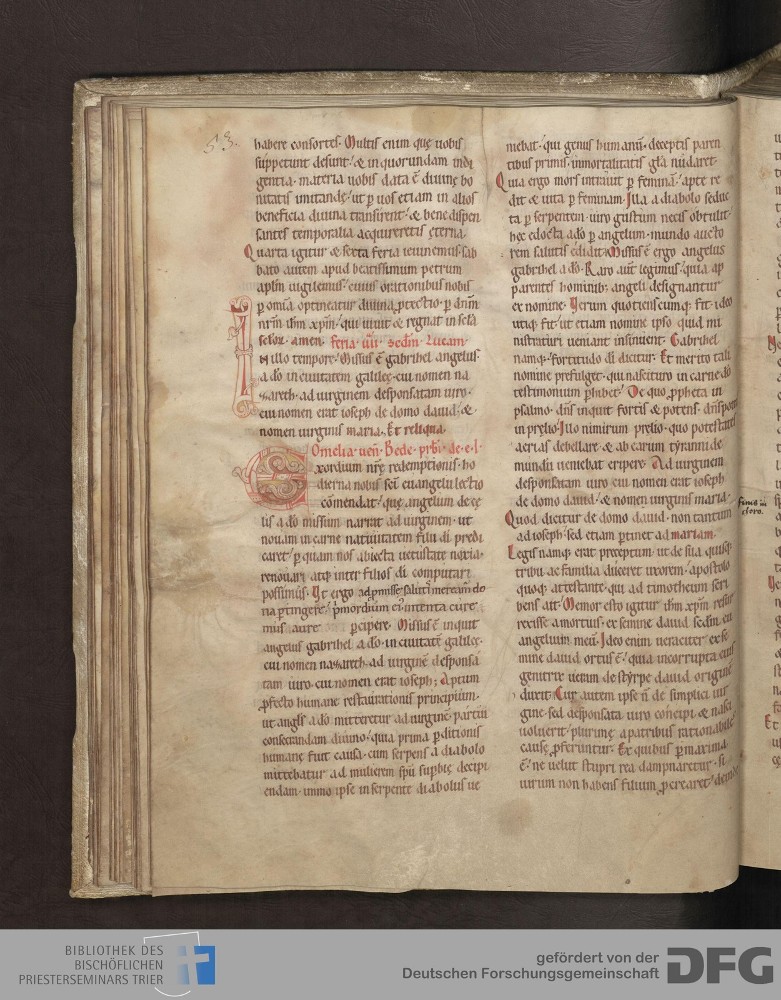 53.
habere consortes. Multis enim quę uobis
suppetunt desunt. & in quorundam indi
gentia. materia uobis data ē diuinę bo
nitatis imitandę. ut ꝑ uos etiam in alios
beneficia diuina transirent. & bene dispen
santes temporalia acquireretis ęterna.
Quarta igitur & sexta feria ieiunemus. sab
bato autem apud beatissimum petrum
aplm̄ uigilemus. cuius orationibus nobis
ꝑ omīa optineatur diuina ꝓtectio. ꝑ dn̄m
nr̄m ihm̄ xpm̄. qui uiuit & regnat in sclā
sclor̄. amen. feria. iiii. Scdm̄ Lucam.
In illo tempore. Missus ē gabrihel angelus
a dō in ciuitatem galileę. cui nomen na
zareth. ad uirginem desponsatam uiro.
cui nomen erat ioseph de domo dauid. &
nomen uirginis maria. Et reliqua.
Omelia. ueñ. Bede. prb̄i. de. e. l.
Exordium nr̄ę redemptionis. ho
dierna nobis scī euangelii lectio
cōmendat. quę angelum de cę
lis a dō missum narrat ad uirginem. ut
nouam in carne natiuitatem filii dī predi
caret. ꝑ quam nos abiecta uetustate noxia.
renouari. atq; inter filios dī computari
possimus. Ut ergo ad ꝓmissę salutis meream̄ do
na ꝑtingere. pͥmordium eiꝰ intenta cure
mus aure ꝑcipere. Missus ē inquit
angelus gabrihel a dō. in ciuitatē galileę.
cui nomen nazareth. ad uirginē desponsa
tam uiro. cui nomen erat ioseph; Aptum
ꝓfecto humanę restaurationis principium.
ut angls̄ a dō mitteretur ad uirginē. partui
consecrandam diuino. quia prima ꝑditionis
humanę fuit causa. cum serpens a diabolo
mittebatur ad mulierem spū suꝑbię decipi
endam. immo ipse in serpente diabolus ue
niebat. qui genus humanū. deceptis paren
tibus primis. inmortalitatis glā nudaret.
Quia ergo mors intrauit ꝑ feminā. apte re
dit & uita ꝑ feminam. Illa a diabolo seduc
ta ꝑ serpentem. uiro gustum necis obtulit.
hęc edocta a dō ꝑ angelum. mundo aucto
rem salutis edidit. Missus ē ergo angelus
gabrihel a dō. Raro aut̄ legimus. quia ap
parentes hominibꝫ angeli designantur
ex nomine. Uerum quotienscumq; fit. ideo
utiq; fit. ut etiam nomine ipso quid mi
nistraturi ueniant insinuent. Gabrihel
namq; fortitudo dī dicitur. Et merito tali
nomine prefulget. qui nascituro in carne dō
testimonium ꝑhibet. De quo ꝓpheta in
psalmo. dn̄s inquit fortis & potens. dn̄s potens
in prelio. Illo nimirum prelio. quo potestates
aerias debellare. & ab earum tyrannide
mundū ueniebat eripere. Ad uirginem
desponsatam uiro cui nomen erat ioseph
de domo dauid. & nomen uirginis maria.
Quod dicitur de domo dauid. non tantum
ad ioseph. sed etiam ꝑtinet ad mariam.
Legis namq; erat preceptum. ut de sua quisq;
tribu ac familia duceret uxorem. apostolo
quoq; attestante. qui ad timotheum scri
bens ait. Memor esto igitur ihm̄ xpm̄ resur
rexisse a mortuis. ex semine dauid sedm̄ eu
angelium meū. Ideo enim ueraciter ex se
mine dauid ortus ē. quia incorrupta eius
genitrix ueram de styrpe dauid originē
duxit. Cur autem ipse n̄ de simplici uir
gine. sed desponsata uiro concipi & nasci
uoluerit. plurimę a patribus rationabiles
causę ꝓferuntur. Ex quibus ꝑmaxima
ē. ne uelut stupri rea dampnaretur. si
uirum non habens filium ꝓcrearet. deinde
BIBLIOTHEK DES
BISCHÖFLICHEN
PRIESTERSEMINARS TRIER
gefördert von der
Deutschen Forschungsgemeinschaft
DFG